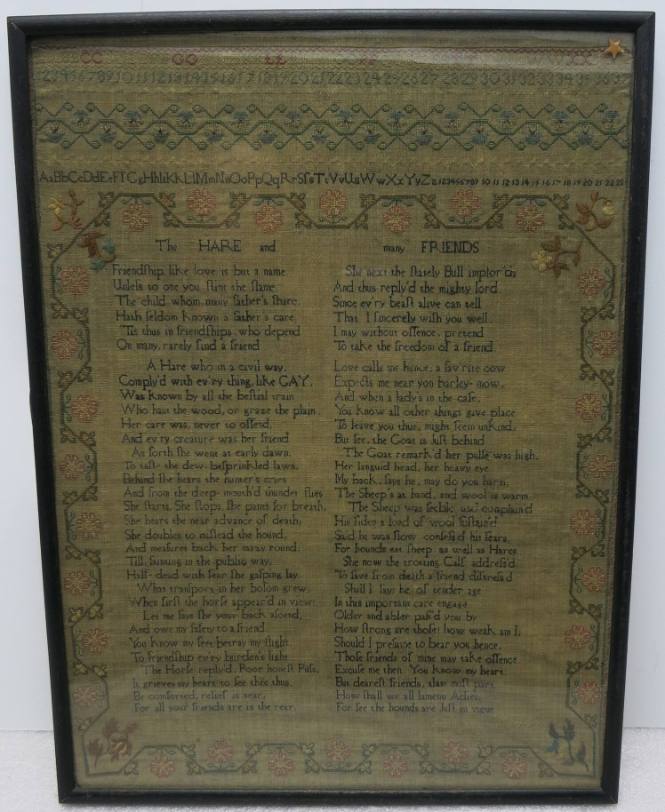 CC GG LL
1 2 3 4 5 6 7 8 9 10 11 12 13 14 15 16 17 18 19 20 21 22 23 24 25 26 27 28 29 30 31 32 33 34 35 36 37
AaBbCcDdEeFfGgHhIiKkLlMmNnOoPpQqRrSſsTtVvUuWwXxYyZz 1 2 3 4 5 6 7 8 9 10 11 12 13 14 15 16 17 18 19 20 21 22 23
The HARE and many FRIENDS
Friendſhip, like love is but a name
Unleſs to one you ſtint the flame.
The child whom many father's ſhare.
Hath ſeldom known a father's care.
'Tis thus in friendſhips, who depend
On many, rarely find a friend
A Hare who in a civil way.
Comply'd with ev'ry thing, like GAY.
Was known by all the beſtial train
Who haunt the wood, or graze the plain.
Her care was, never to offend,
And ev'ry creature was her friend
As forth ſhe went at early dawn.
To taſte the dew-beſprinkled lawn.
Behind ſhe hears the hunter's cries
And from the deep-mouth'd thunder flies
She ſtarts, She ſtops, She pants for breath,
She hears the near advance of death;
She doubles to miſlead the hound,
And meaſures back her mazy round:
Till, fainting in the public way,
Half-dead with fear ſhe gaſping lay
What tranſport in her boſom grew,
When firſt the horſe appear'd in view:
Let me ſays ſhe your back aſcend,
And owe my ſafety to a friend.
You know my feet betray my flight
To friendſhip ev'ry burden's light
The Horſe reply'd, Poor honeſt Puſs,
It grieves my heart to ſee thee thus.
Be comforted, relief is near,
For all your friends are in the rear.
She next the ſtately Bull implor'd
And thus reply'd the mighty lord.
Since ev'ry beaſt alive can tell
That I ſincerely wiſh you well
I may without offence, pretend
To take the freedom of a friend.
Love calls me hence, a fav'rite cow
Expects me near yon barley-mow,
And when a lady's in the caſe,
You know all other things give place
To leave you thus, might ſeem unkind,
But ſee, the Goat is juſt behind
The Goat remark'd her pulſe was high.
Her languid head, her heavy eye
My back, ſays he, may do you harm,
The Sheep's at hand, and wool is warm.
The Sheep was feeble, and complain'd
His ſides a load of wool ſuſtain'd
Said he was ſlow, confeſs'd his fears,
For hounds eat ſheep as well as Hares
She now the trotting Calf addreſs'd
To ſave from death a friend diſtreſs'd
Shall I ſays he, of tender age
In this important care engage
Older and abler paſs'd you by
How ſtrong are thoſe! how weak am I;
Should I preſume to bear you hence,
Thoſe friends of mine may take offence
Excuſe me then. You know my heart
But deareſt friends, alas muſt part
How ſhall we all lament Adieu,
For ſee the hounds are Juſt in view